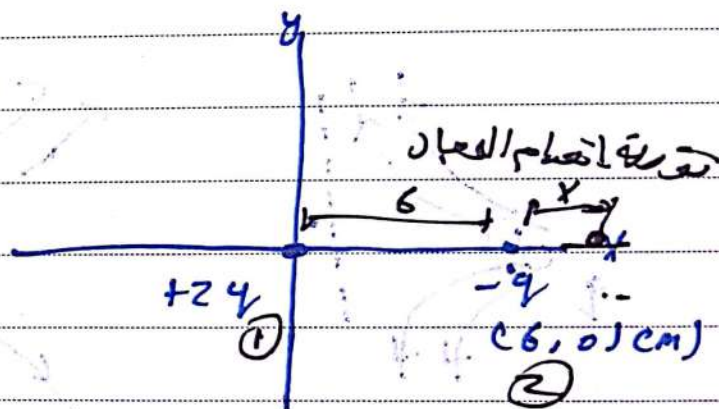 y
نقطة انعدام المجال
6 x
x
+2q -q
① (6,0) (cm)
②